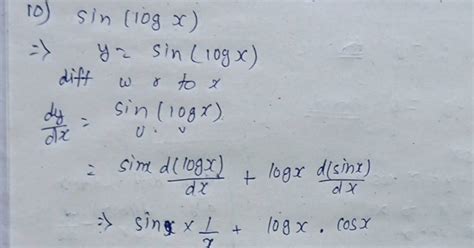 10) sin (log x)
=> y = sin (log x)
diff w r to x
dy/dx = sin (log x)
U . V
= sinx d(logx)/dx + logx d(sinx)/dx
=> sinx × 1/x + logx . cosx